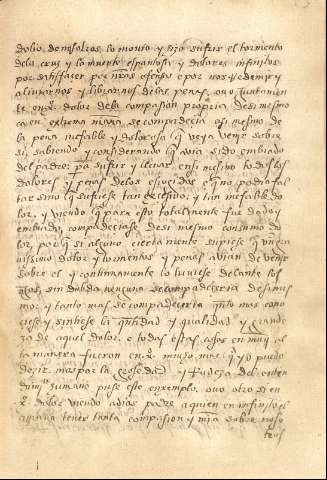 dolio de nosotros lo mouio y hizo sufrir el tormento
dela cruz y la muerte espantosa y dolores infinitos
por satisfazer por nr̄as ofensas e por nos Redemir y
aliuiarnos y librarnos delas penas, ouo juntamen
te en x̄. dolor dela compasion propria desi mesmo
ca en extrema man̄a se compadecia asi mesmo de
la pena inefable y dolorosa q̄ veya venir sobre
si, sabiendo y considerando q̄ auia sido embiado
del padre, pa sufrir y lleuar en si mesmo todos los
dolores y penas delos escogidos e q̄ no podia fal
tar sino q̄ sufriese tan excesiuo, y tan inefable do
lor, y viendo q̄ para esto totalmente fue dado y
embiado, compadeciase desi mesmo con sumo do
lor, porq̄ si alguno ciertamente supiese q̄
dolor y tormentos y penas avian de venir
sobre el y continuamente lo tuuiese delante sus
ojos, sin dubda ninguna se compadeceria de si mis
mo, y tanto mas se compadeceria q̄nto mas cono
ciese y sintiese la q̄ntidad y qualidad y grande
za de aquel dolor. e todas estas cosas en muy al
ta manera fueron en x̄. mucho mas q̄ yo puedo
dezir. mas por la grosedad y rudeza del enten
dimj̄o humano puse este enxemplo. ouo otro si en
x̄. dolor viendo a dios padre a quien en infinito el
amaua tener tanta compasion y mj̄a sobre noso
tros